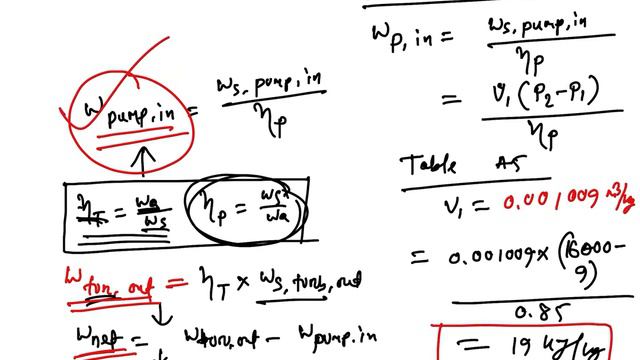 w pump,in = ws,pump,in / ηp
ηT = wa / ws ηp = ws / wa
w turb,out = ηT × ws,turb,out
wnet = wturb,out - wpump,in
wp,in = ws,pump,in / ηp
= v1 (P2-P1) / ηp
Table A5
v1 = 0.001009 m3/kg
= 0.001009 × (16000-9) / 0.85
= 19 kJ/kg